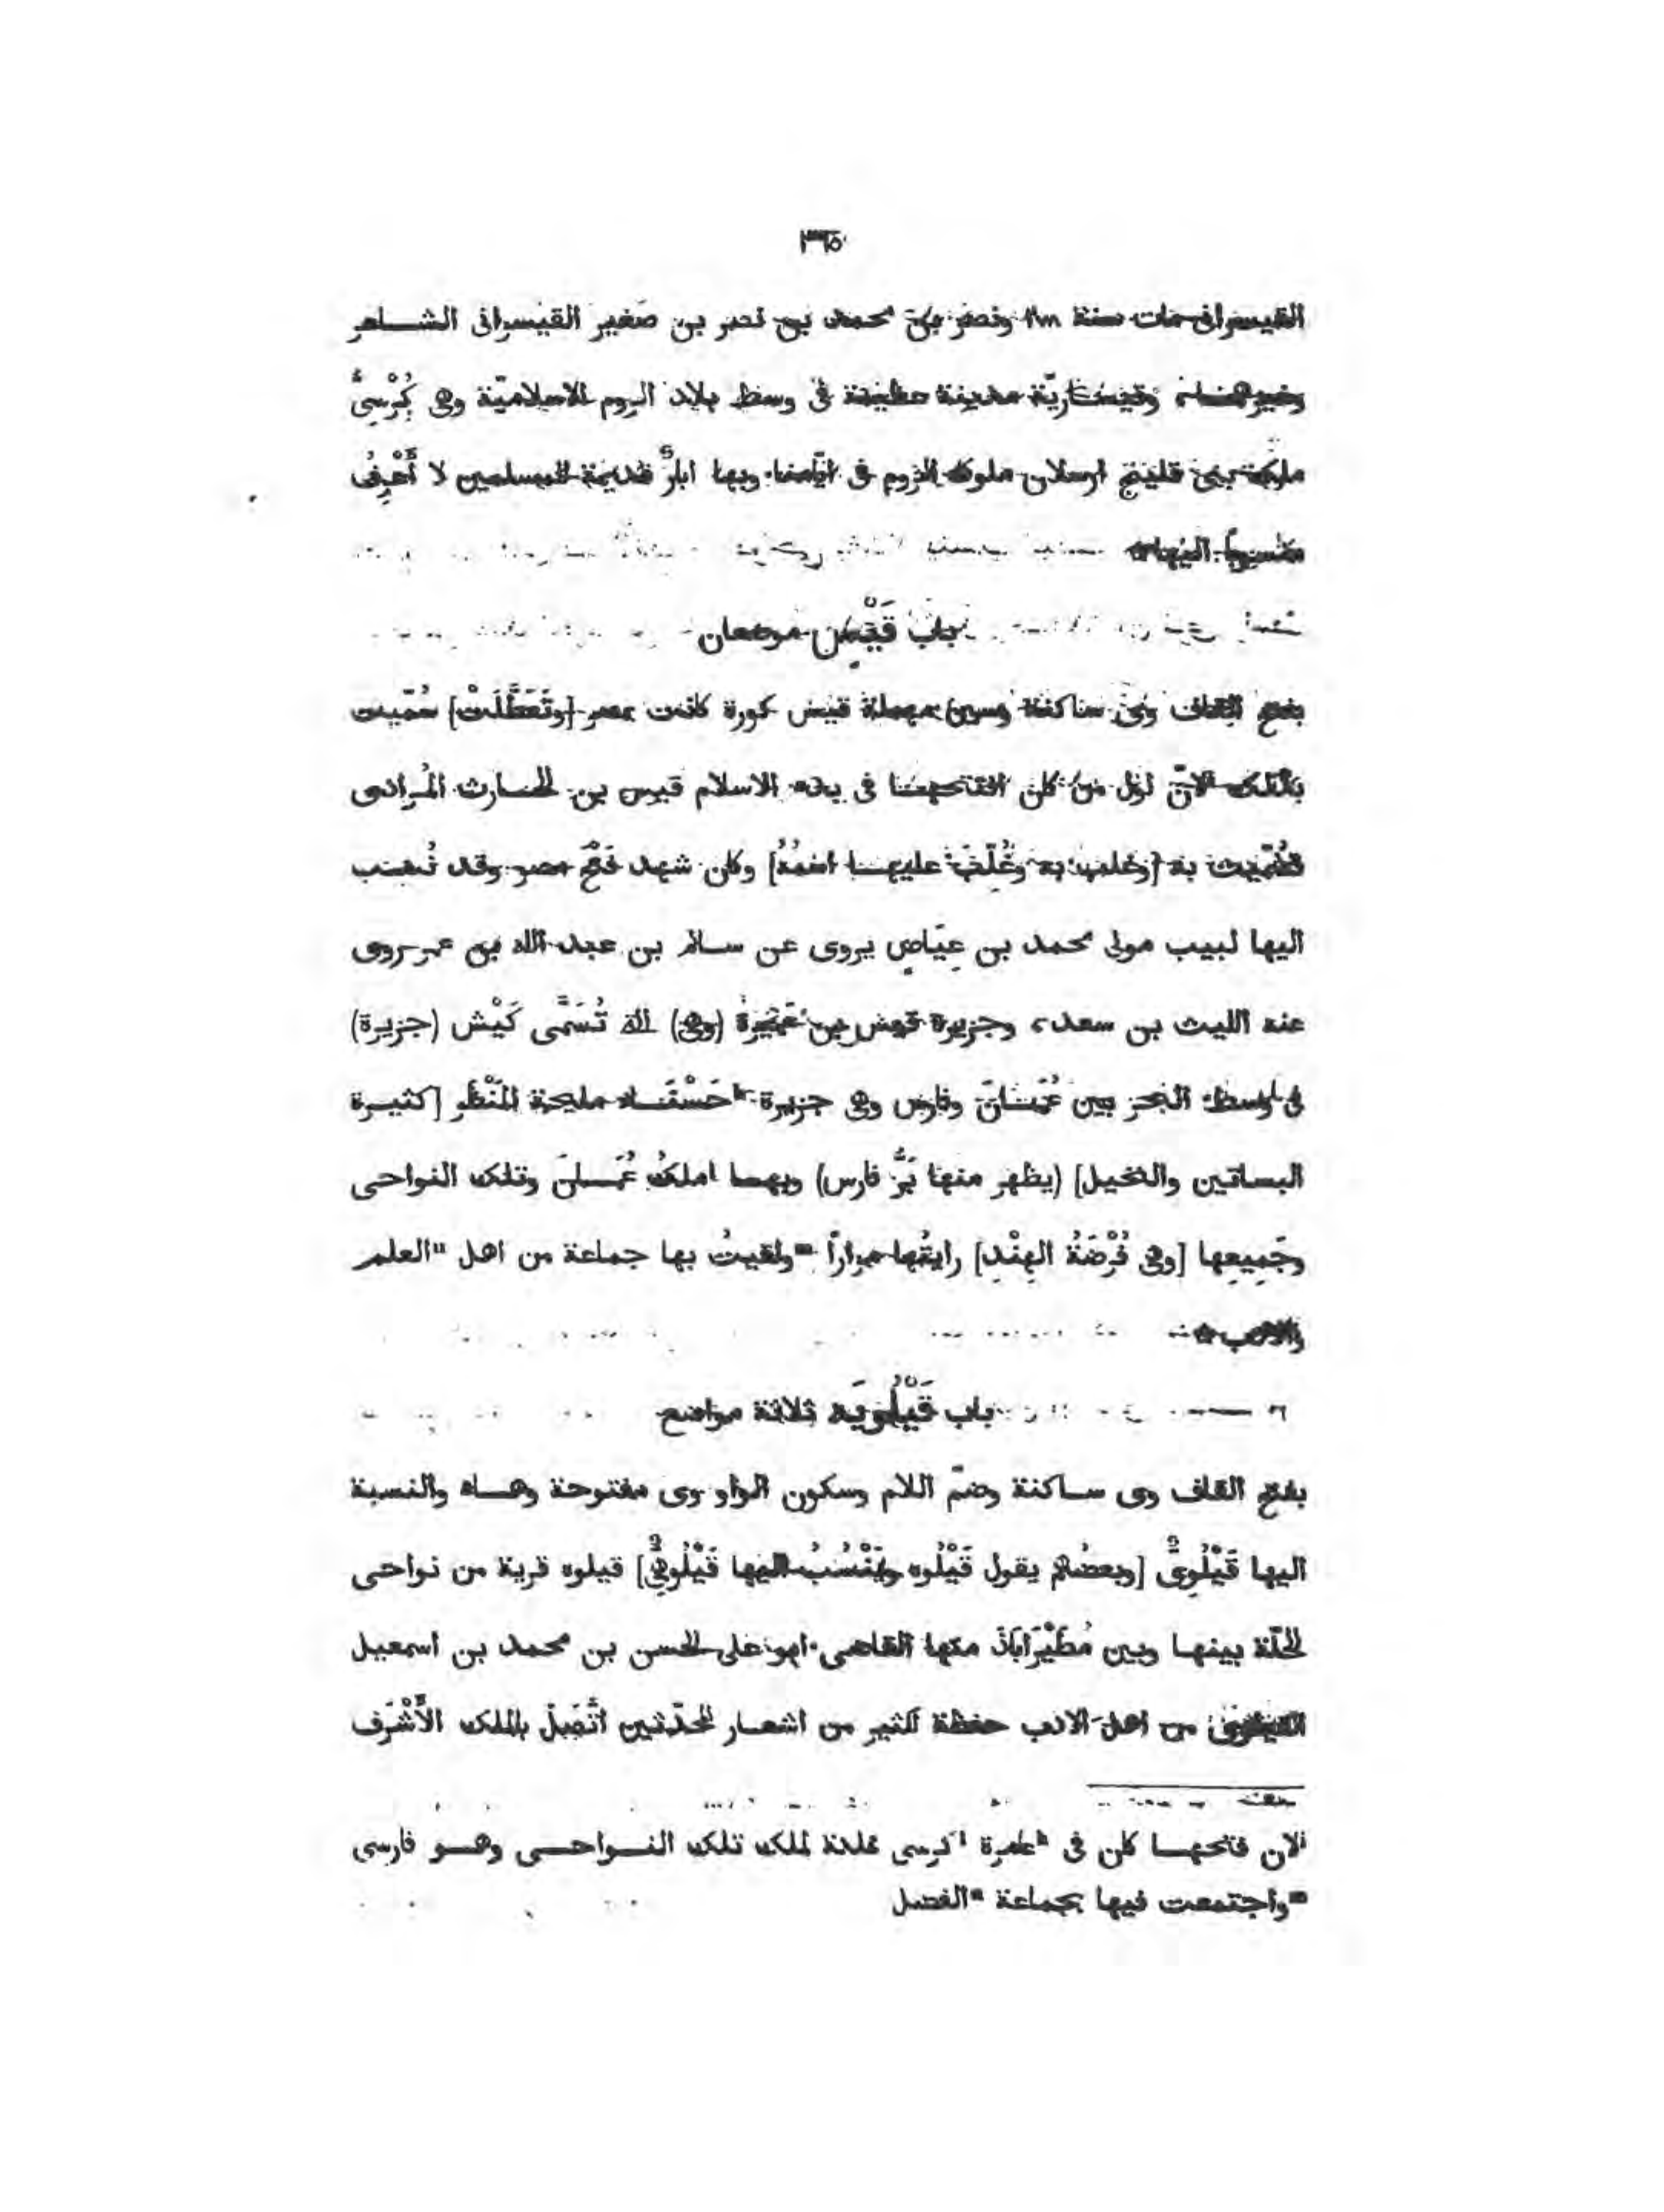 ٣٦٥
القيسرانى مات سنة ونصر بن محمد بن نصر بن صَغِير القيسرانى الشاعر
وغيرهما، وقيسَارِيّة مدينة عظيمة فى وسط بلاد الروم الاسلاميّة وهى كُرْسِىُّ
ملوكه بنى قليج ارسلان ملوك الروم فى ايّامنا وبها اثارٌ قديمة للمسلمين لا أَعْرِفُ
منسوبا اليها ۞
باب قَيْسٍ موضعان
بفتح القاف وى ساكنة وسين مهملة قيس كورة كانت بمصر [وتَعَطَّلَتْ] سُمّيت
بذلك لانّ اول من كان افتتحها فى بدء الاسلام قيس بن الحارث المُرادى
فسُمّيت به [وغلب به وغُلّب عليها اسمُهُ] وكان شهد فَتْحَ مصر وقد نُسب
اليها لبيب مولى محمد بن عِيَاضٍ يروى عن سالم بن عبد الله بن عمر روى
عنه الليث بن سعد، وجزيرة قيس بن عَمِيرة (وهى) التى تُسَمَّى كَيْش (جزيرة)
فى وسط البحر بين عُمَان وفارس وهى جزيرة حَسْنَاء مليحة المَنْظر [كثيرة
البساتين والنخيل] (يظهر منها بَرُّ فارس) وبها املكُ عُمَان وتلك النواحى
وجَمِيعِها [وهى فُرْضَةُ الهِنْدِ] رايتُها مِراراً ولقيتُ بها جماعة من اهل العلم
والادب ۞
باب قَيْلُويَه ثلاثة مواضع
بفتح القاف وى ساكنة وضمّ اللام وسكون الواو وى مفتوحة وهاء والنسبة
اليها قَيْلُوِىٌّ [وبعضُهم يقول قَيْلُوه ويَنْسُبُ اليها قَيْلُوهِىٌّ] قيلوه قرية من نواحى
الحلّة بينها وبين مُطَيْرَاباذ منها القاضى ابو على الحسن بن محمد بن اسمعيل
القيلوى من اهل الادب حفظة لكثير من اشعار المحدّثين اتّصل بالملك الأَشْرَف
لان فتحها كان فى عامرة كرسى مملكة لملك تلك النواحى وهو فارسى
واجتمعت فيها بجماعة الفضل